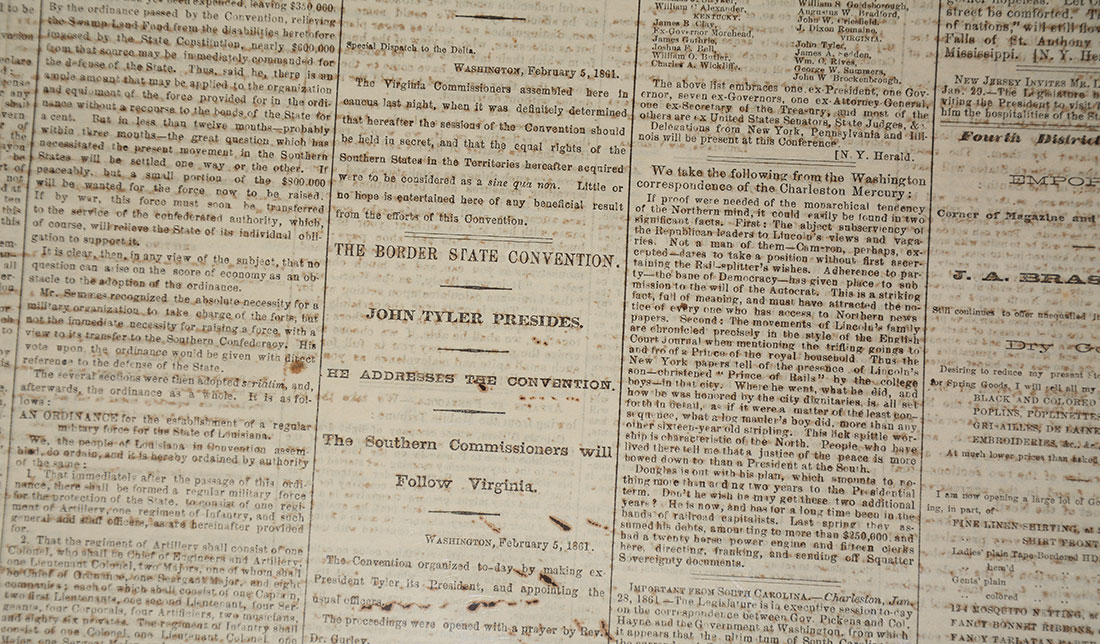 By the ordinance passed by the Convention, relieving
the Swamp Land Fund from the disabilities heretofore
imposed by the State Constitution, nearly $600,000
from that source may be immediately commanded for
the defense of the State. Thus, said he, there is an
ample amount that may be applied to the organization
and equipment of the force provided for in the ordi-
nance without a recourse to the bonds of the State for
a cent. But in less than twelve months—probably
within three months—the great question which has
necessitated the present movement in the Southern
States will be settled one way or the other. If
peaceably, but a small portion of the $800,000
will be wanted for the force now to be raised.
If by war, this force must soon be transferred
to the service of the confederated authority, which,
of course, will relieve the State of its individual obli-
gation to support it.
It is clear, then, in any view of the subject, that no
question can arise on the score of economy as an ob-
stacle to the adoption of the ordinance.
Mr. Semmes recognized the absolute necessity for a
military organization to take charge of the forts, but
not the immediate necessity for raising a force, with a
view to its transfer to the Southern Confederacy. His
vote upon the ordinance would be given with direct
reference to the defense of the State.
The several sections were then adopted seriatim, and,
afterwards, the ordinance as a whole. It is as fol-
lows:
AN ORDINANCE for the establishment of a regular
military force for the State of Louisiana.
We, the people of Louisiana in Convention assem-
bled, do ordain, and it is hereby ordained by authority
of the same:
That immediately after the passage of this ordi-
nance, there shall be formed a regular military force
for the protection of the State, to consist of one regi-
ment of Artillery, one regiment of Infantry, and such
general and staff officers, as are hereinafter provided
for.
2. That the regiment of Artillery shall consist of one
Colonel, who shall be Chief of Engineers and Artillery,
one Lieutenant Colonel, two Majors, one of whom shall
be Chief of Ordnance, one Sergeant Major, and eight
companies; each of which shall consist of one Captain,
two first Lieutenants, one second Lieutenant, four Ser-
geants, four Corporals, four Artificers, two musicians,
and eighty six privates. The regiment of Infantry shall
consist of one Colonel, one Lieutenant Colonel, one
Special Dispatch to the Delta.
WASHINGTON, February 5, 1861.
The Virginia Commissioners assembled here in
caucus last night, when it was definitely determined
that hereafter the sessions of the Convention should
be held in secret, and that the equal rights of the
Southern States in the Territories hereafter acquired
were to be considered as a sine qua non. Little or
no hope is entertained here of any beneficial result
from the efforts of this Convention.
THE BORDER STATE CONVENTION.
JOHN TYLER PRESIDES.
HE ADDRESSES THE CONVENTION.
The Southern Commissioners will
Follow Virginia.
WASHINGTON, February 5, 1861.
The Convention organized to-day by making ex-
President Tyler its President, and appointing the
usual officers.
The proceedings were opened with a prayer by Rev.
Dr. Gurley.
William C Alexander,
KENTUCKY.
James B Clay,
Ex-Governor Morehead,
James Guthrie,
Joshua F. Bell,
William O. Butler,
Charles A. Wickliffe.
William S Goldsborough,
Augustus W. Bradford,
John W. Crisfield,
J. Dixon Romaine.
VIRGINIA.
John Tyler,
James A. Sedden,
Wm. O. Rives,
George W. Summers,
John W Brockenbrough.
The above list embraces one ex-President, one Gov-
ernor, seven ex-Governors, one ex-Attorney-General,
one ex-Secretary of the Treasury, and most of the
others are ex United States Senators, State Judges, &c
Delegations from New York, Pennsylvania and Illi-
nois will be present at this Conference.
[N. Y. Herald.
We take the following from the Washington
correspondence of the Charleston Mercury:
If proof were needed of the monarchical tendency
of the Northern mind, it could easily be found in two
significant facts. First: The abject subserviency of
the Republican leaders to Lincoln's views and vaga-
ries. Not a man of them—Cameron, perhaps, ex-
cepted—dares to take a position without first ascer-
taining the Rail-splitter's wishes. Adherence to par-
ty—the bane of Democracy—has given place to sub
mission to the will of the Autocrat. This is a striking
fact, full of meaning, and must have attracted the no-
tice of every one who has access to Northern news
papers. Second: The movements of Lincoln's family
are chronicled precisely in the style of the English
Court Journal when mentioning the trifling goings to
and fro of a Prince of the royal household Thus the
New York papers tell of the presence of Lincoln's
son—christened "Prince of Rails" by the college
boys—in that city. Where he went, what he did, and
how he was honored by the city dignitaries, is all set
forth in detail, as if it were a matter of the least con-
sequence, what a log mauler's boy did, more than any
other sixteen-year old stripling. This lick spittle wor-
ship is characteristic of the North. People who have
lived there tell me that a justice of the peace is more
bowed down to than a President at the South.
Douglas is out with his plan, which amounts to no-
thing more than adding two years to the Presidential
term. Don't he wish he may get these two additional
years? He is now, and has for a long time been in the
hands of railroad capitalists. Last spring they as-
sumed his debts, amounting to more than $250,000, and
had a twenty horse power engine and fifteen clerks
here, directing, franking, and sending off Squatter
Sovereignty documents.
IMPORTANT FROM SOUTH CAROLINA.—Charleston, Jan.
28, 1861.—The Legislature is in executive session to-day
on the correspondence between Gov. Pickens and Col.
Hayne and the Government at Washington, from which
it appears that the ultimatum of South Carolina
street be comforted.
of nations," will still flow
Falls of St. Anthony
Mississippi. [N. Y. Her
NEW JERSEY INVITES MR. L
Jan. 29.—The Legislature h
viting the President to visit
him the hospitalities of the St
Fourth District
EMPOR
Corner of Magazine and
J. A. BRAS
Still continues to offer unequalled
Dry Go
Desiring to reduce my present St
for Spring Goods, I will sell all my
BLACK AND COLORED
POPLINS, POPLINETTES
GRISAILLES, DE LAINE
EMBROIDERIES, &c., &c.
At much lower prices than asked
I am now opening a large lot of Go
ing, in part, of
FINE LINEN SHIRTING, at
SHIRT FRONT
Ladies' plain Tape-Bordered HD
" hem'd
Gents' plain
" colored
124 MOSQUITO NETTING, at
FANCY BONNET RIBBONS,
FANCY TABLE